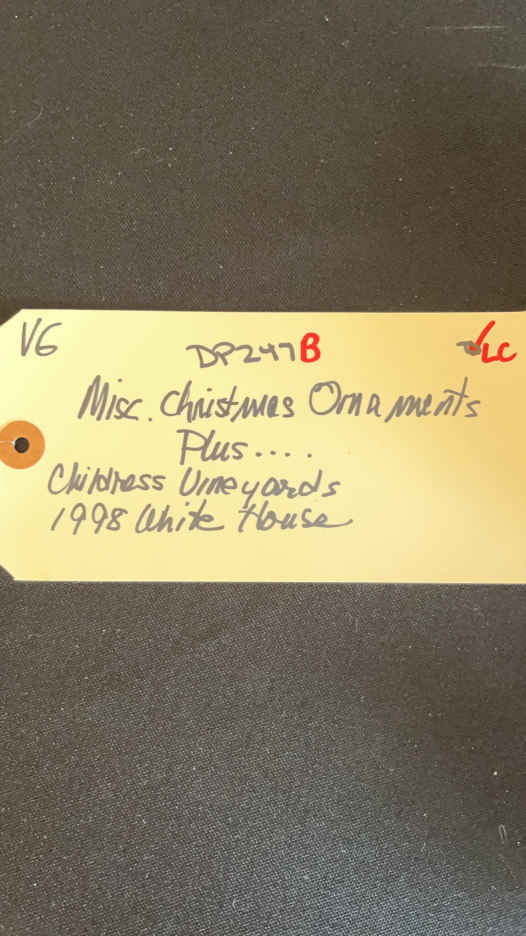 VG
DP247B
LC
Misc. Christmas Ornaments
Plus....
Childress Vineyards
1998 White House